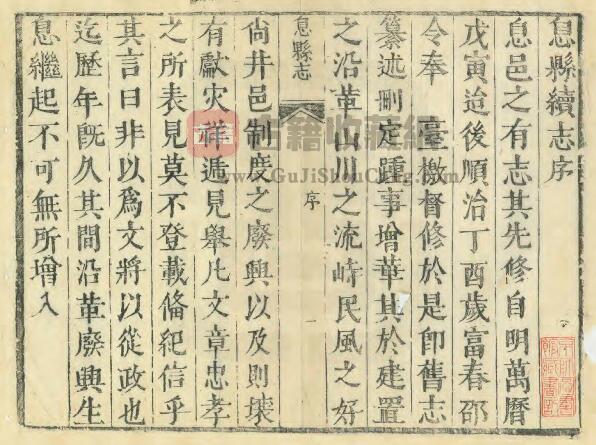 息縣續志序
息邑之有志其先修自明萬曆
戊寅迨後順治丁酉歲富春邵
令奉 臺檄督修於是卽舊志
纂述刪定踵事增華其於建置
之沿革山川之流峙民風之好
息縣志
序
一
尚井邑制度之廢興以及則壤
有獻灾祥遞見舉凡文章忠孝
之所表見莫不登載備紀信乎
其言曰非以爲文將以從政也
迄歷年旣久其間沿革廢興生
息繼起不可無所增入
古籍收藏網
www.GuJiShouCang.com